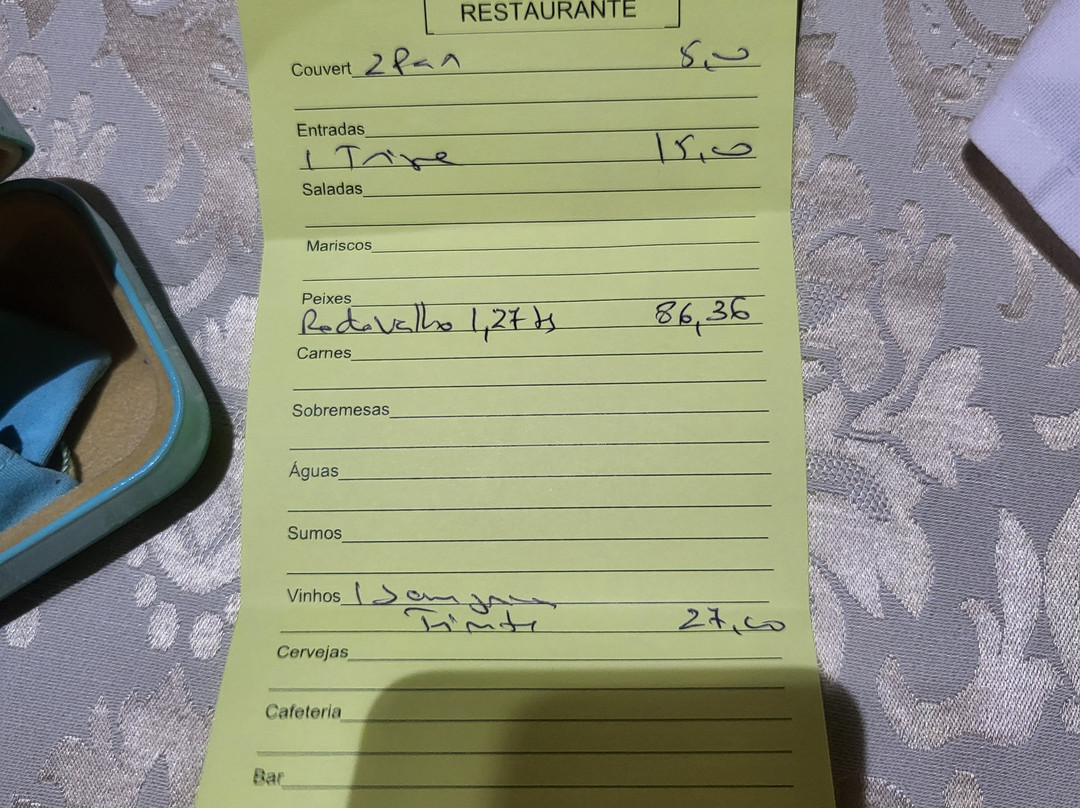 RESTAURANTE
Couvert 2 Pan 5,00
Entradas
1 Tripe 15,00
Saladas
Mariscos
Peixes
Rodovalho 1,27 86,36
Carnes
Sobremesas
Águas
Sumos
Vinhos 1
27,00
Cervejas
Cafeteria
Bar